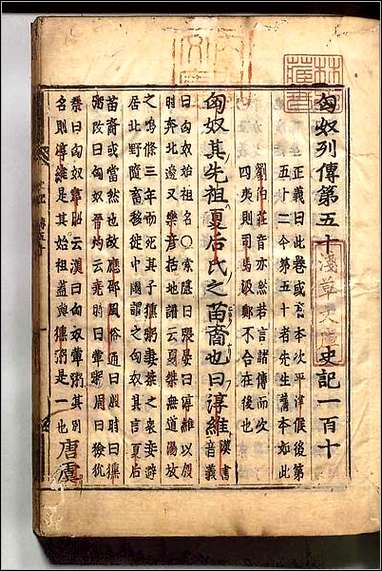 匈奴列傳第五十　史記一百十
正義曰此卷或有本次平津侯後第
五十二今第五十者先生舊本如此
劉伯莊音亦然若言諸傳而次
四夷則司馬汲鄭不合在後也
匈奴其先祖夏后氏之苗裔也曰淳維漢書音義
曰匈奴始祖名○索隱曰張晏曰淳維以殷
時奔北邊又樂彥括地譜云夏桀無道湯放
之鳴條三年而死其子獯粥妻桀之衆妾避
居北野隨畜移徙中國謂之匈奴其言夏后
苗裔或當然也故應劭風俗通曰殷時曰獯
粥改曰匈奴晉灼云堯時曰葷粥周曰獫狁
秦曰匈奴韋昭云漢曰匈奴葷粥其別
名則淳維是其始祖蓋與獯粥是一也唐虞
淺草文庫